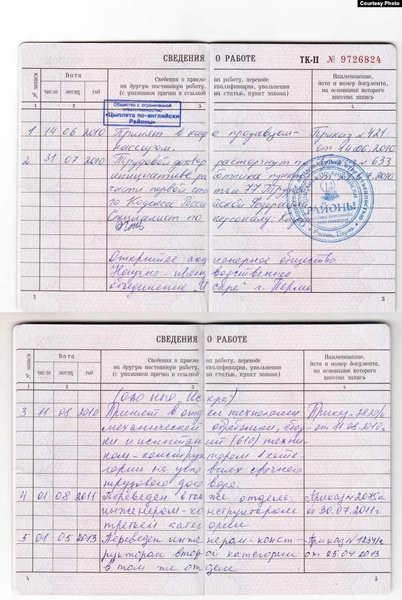 Courtesy Photo
СВЕДЕНИЯ О РАБОТЕ
ТК-II № 9726824
№ записи
Дата
число месяц год
Сведения о приеме на работу, переводе
на другую постоянную работу, квалификации, увольнении
(с указанием причин и ссылкой на статью, пункт закона)
Наименование,
дата и номер документа,
на основании которого
внесена запись
1 2 3 4
Общество с ограниченной
ответственностью
«Цыплята по-английски
Районы»
1 14 06 2010 Принят в кафе продавцом- Приказ №421
кассиром. от 14.06.2010
2 31 07 2010 Трудовой договор расторгнут по №633
инициативе работника пункт 2010
части первой статьи 77 Трудо
го Кодекса Российской Федерации
Специалист по персоналу:
РАЙОНЫ
Открытое акционерное общество
Научно-производственное
объединение "Искра" г. Пермь
2 3
СВЕДЕНИЯ О РАБОТЕ
№ записи
Дата
число месяц год
Сведения о приеме на работу, переводе
на другую постоянную работу, квалификации, увольнении
(с указанием причин и ссылкой на статью, пункт закона)
Наименование,
дата и номер документа,
на основании которого
внесена запись
1 2 3 4
(ОАО НПО "Искра")
3 11 08 2010 Принят в отдел технологии Приказ
механической обработки, сбор- от 11.08.2010г.
ки и испытаний (610) техни-
ком-конструктором 1 кате-
гории на условиях срочного
трудового договора.
4 01 08 2011 Переведен в том же отделе Приказ №2075к
инженером-конструктором от 30.07.2011г.
третьей категории
5 01 05 2013 Переведен инженером-конст- Приказ №1234/к
руктором второй категории от 25.04.2013
в том же отделе
4 5